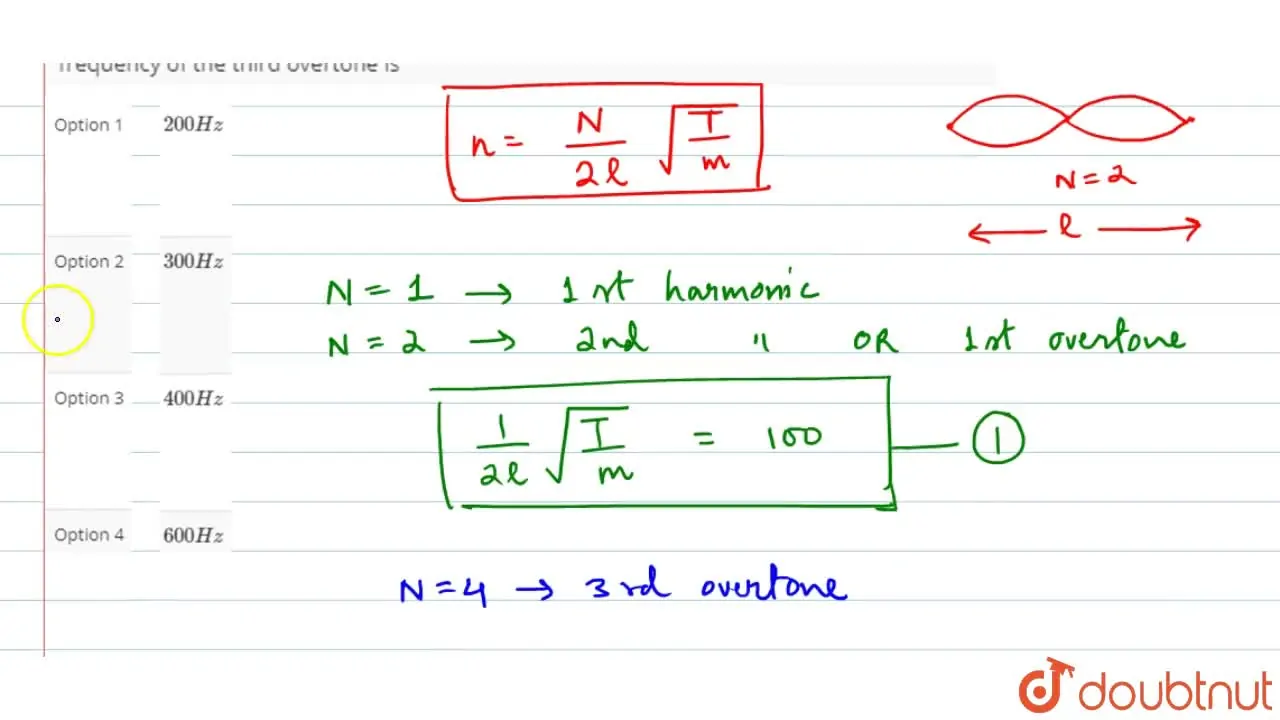 frequency of the third overtone is
Option 1 200Hz
n = N/2l √T/m
N = 2
l
Option 2 300Hz
N = 1 → 1st harmonic
N = 2 → 2nd " OR 1st overtone
Option 3 400Hz
1/2l √T/m = 100 — ①
Option 4 600Hz
N = 4 → 3rd overtone
doubtnut